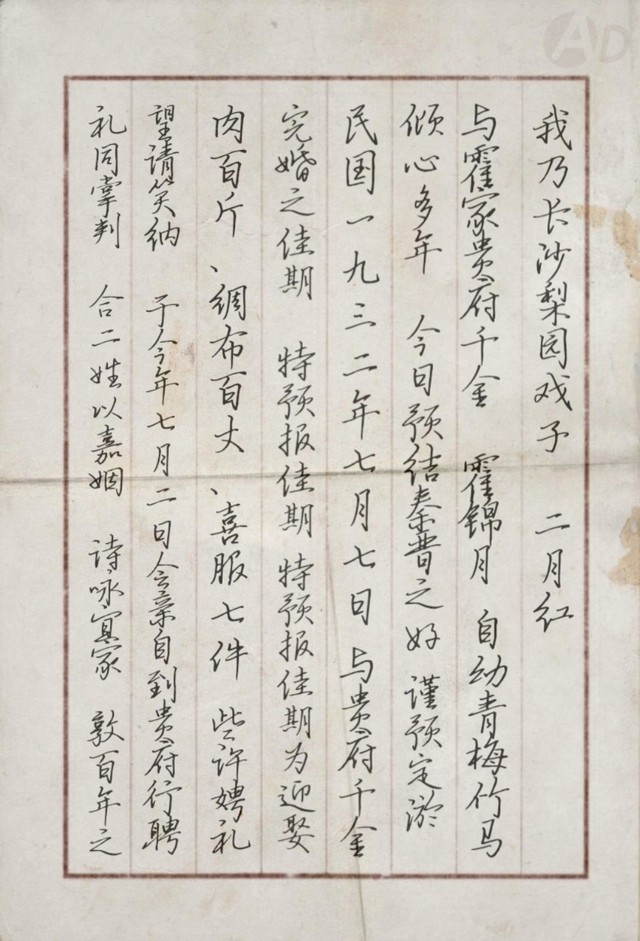 我乃长沙梨园戏子 二月红
与霍家贵府千金 霍锦月 自幼青梅竹马
倾心多年 今日预结秦晋之好 谨预定於
民国一九三二年七月七日 与贵府千金
完婚之佳期 特预报佳期 特预报佳期为迎娶
肉百斤、绸布百丈、喜服七件 些许娉礼
望请笑纳 于今年七月二日会亲自到贵府行聘
礼同掌判 合二姓以嘉姻 诗咏宜家 敦百年之